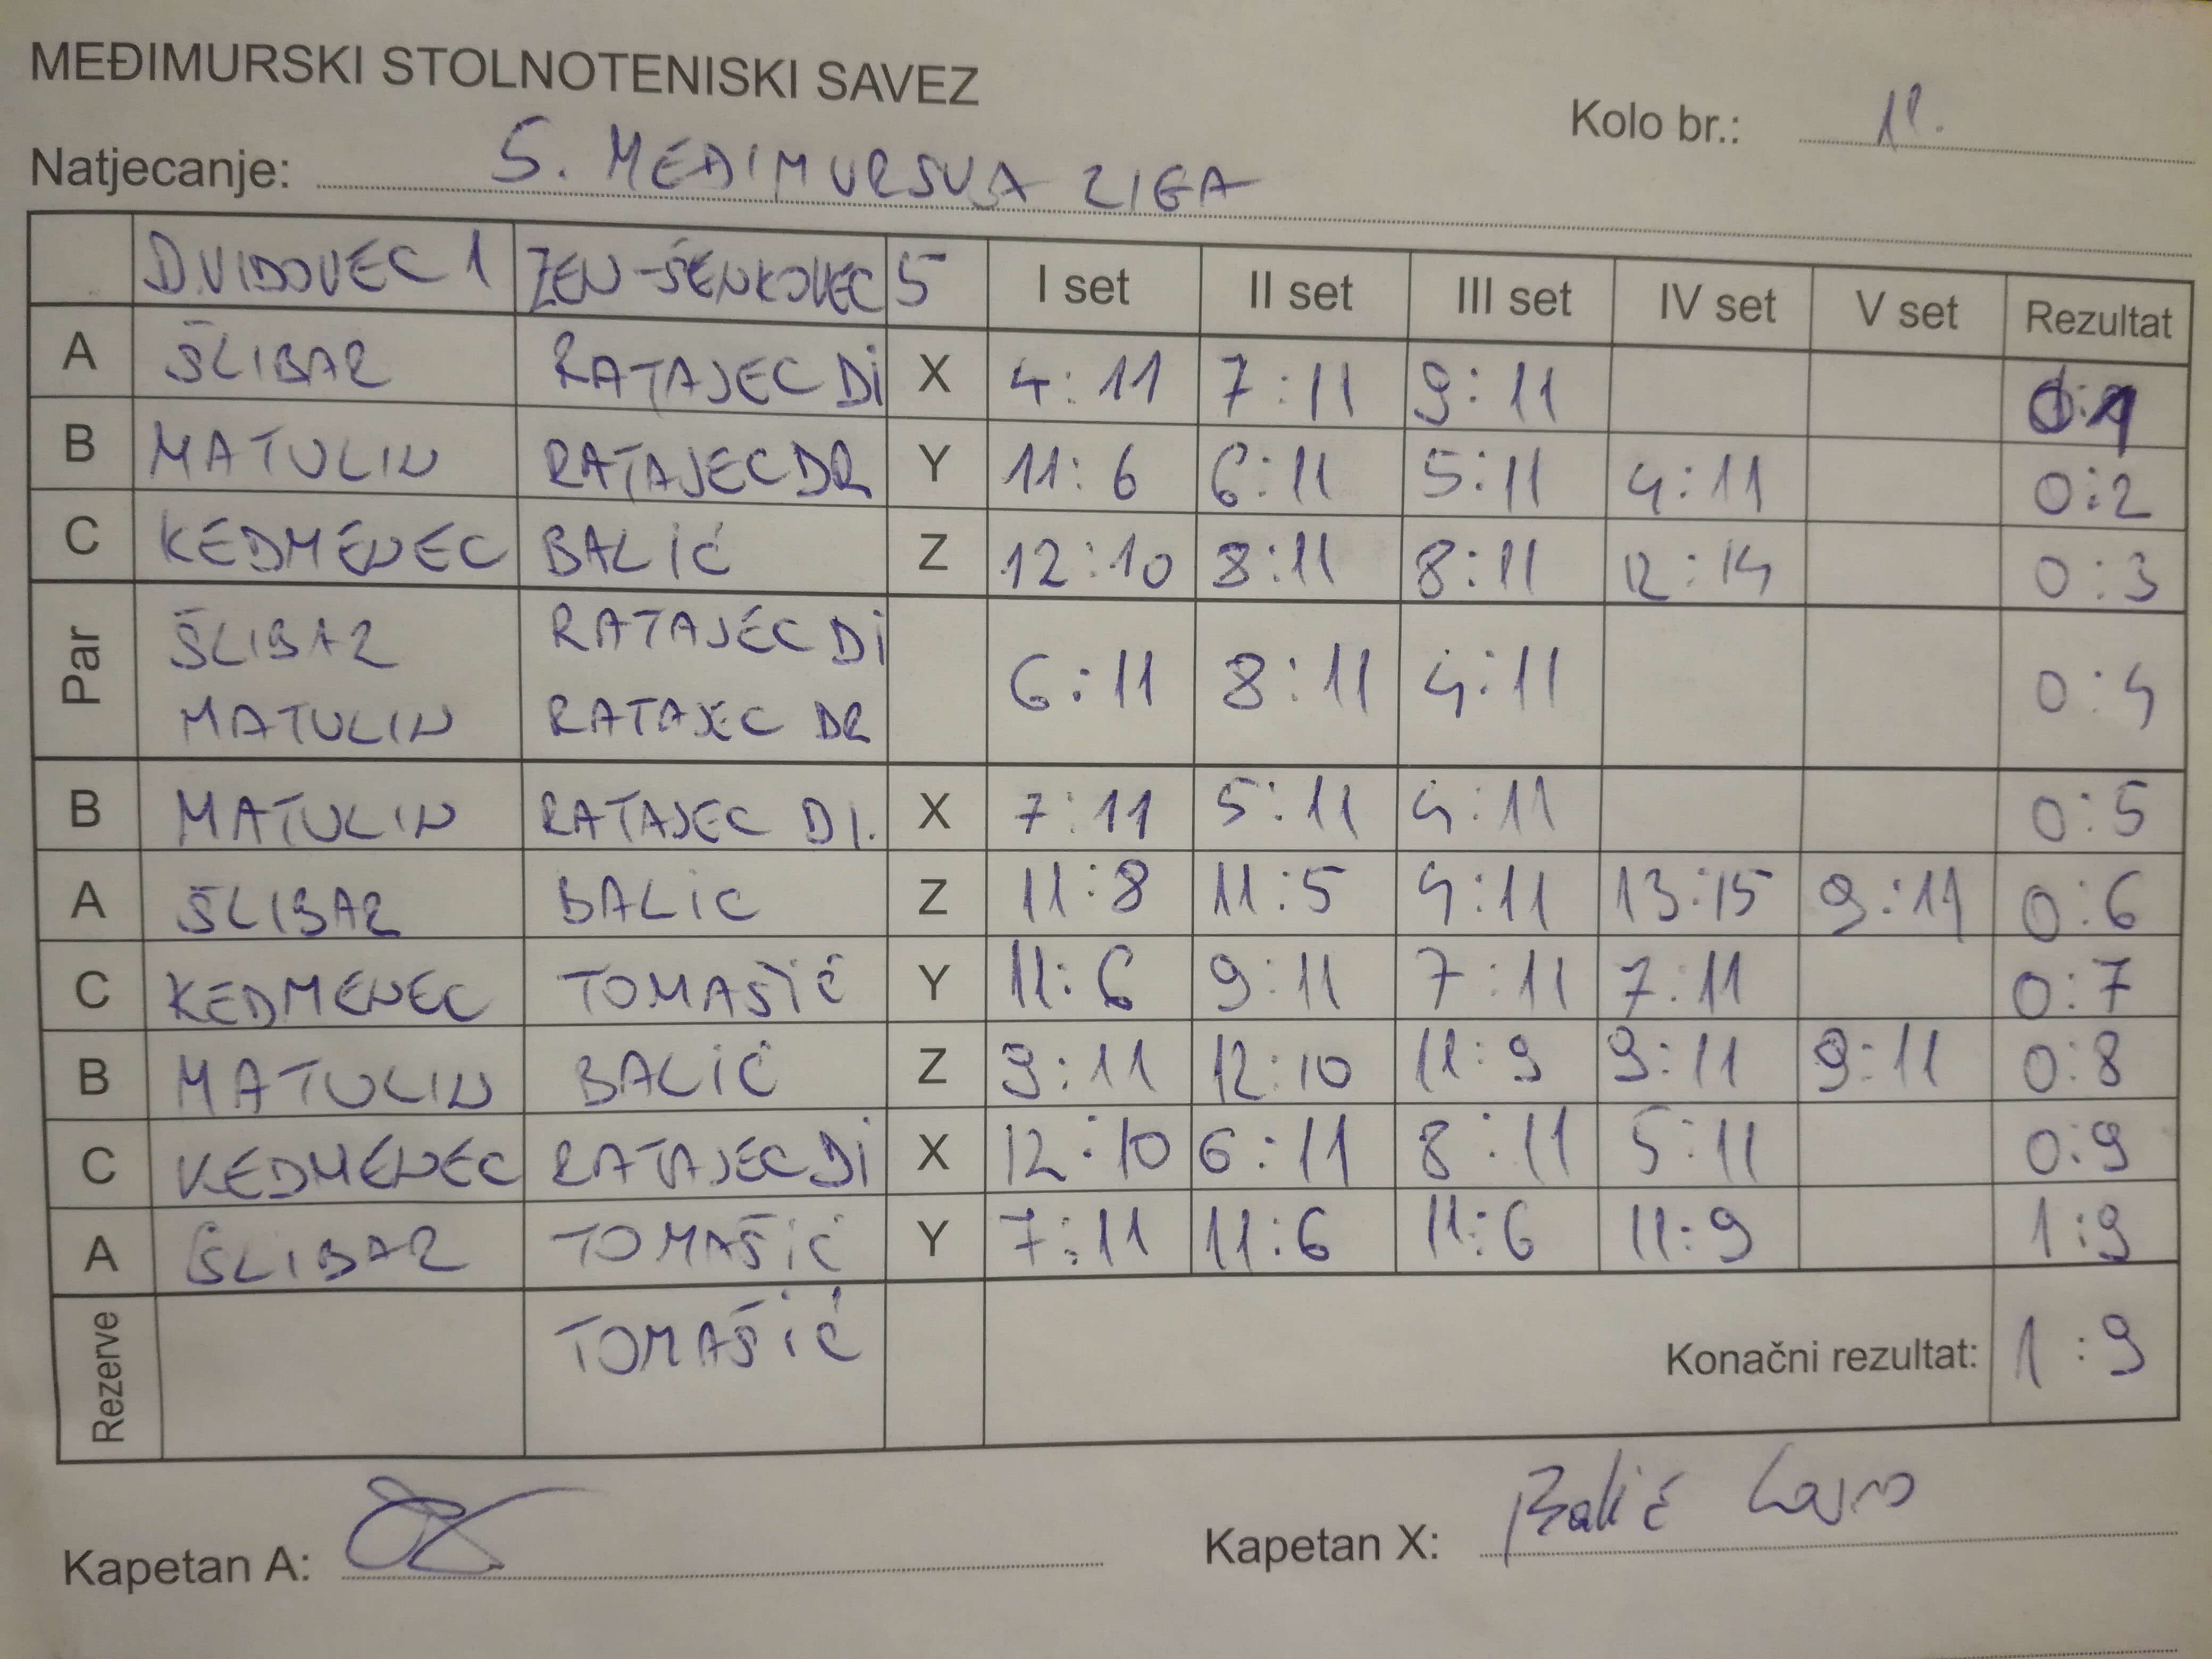 MEĐIMURSKI STOLNOTENISKI SAVEZ
Kolo br.:
Natjecanje: 5. MEĐIMURSKA LIGA
D.VIDOVEC 1 ZEN-ŠENKOVEC 5 I set II set III set IV set V set Rezultat
A ŠLIBAR RATAJEC DI X 4:11 7:11 9:11 0:1
B MATULIN RATAJEC DR Y 11:6 6:11 5:11 4:11 0:2
C KEDMENEC BALIĆ Z 12:10 8:11 8:11 12:14 0:3
Par ŠLIBAR RATAJEC DI 6:11 8:11 4:11 0:4
MATULIN RATAJEC DR
B MATULIN RATAJEC DI. X 7:11 5:11 4:11 0:5
A ŠLIBAR BALIĆ Z 11:8 11:5 4:11 13:15 9:11 0:6
C KEDMENEC TOMAŠIĆ Y 11:6 9:11 7:11 7:11 0:7
B MATULIN BALIĆ Z 9:11 12:10 11:9 9:11 9:11 0:8
C KEDMENEC RATAJEC DI X 12:10 6:11 8:11 5:11 0:9
A ŠLIBAR TOMAŠIĆ Y 7:11 11:6 11:6 11:9 1:9
Rezerve TOMAŠIĆ Konačni rezultat: 1:9
Kapetan A:
Kapetan X: Balić Lovro